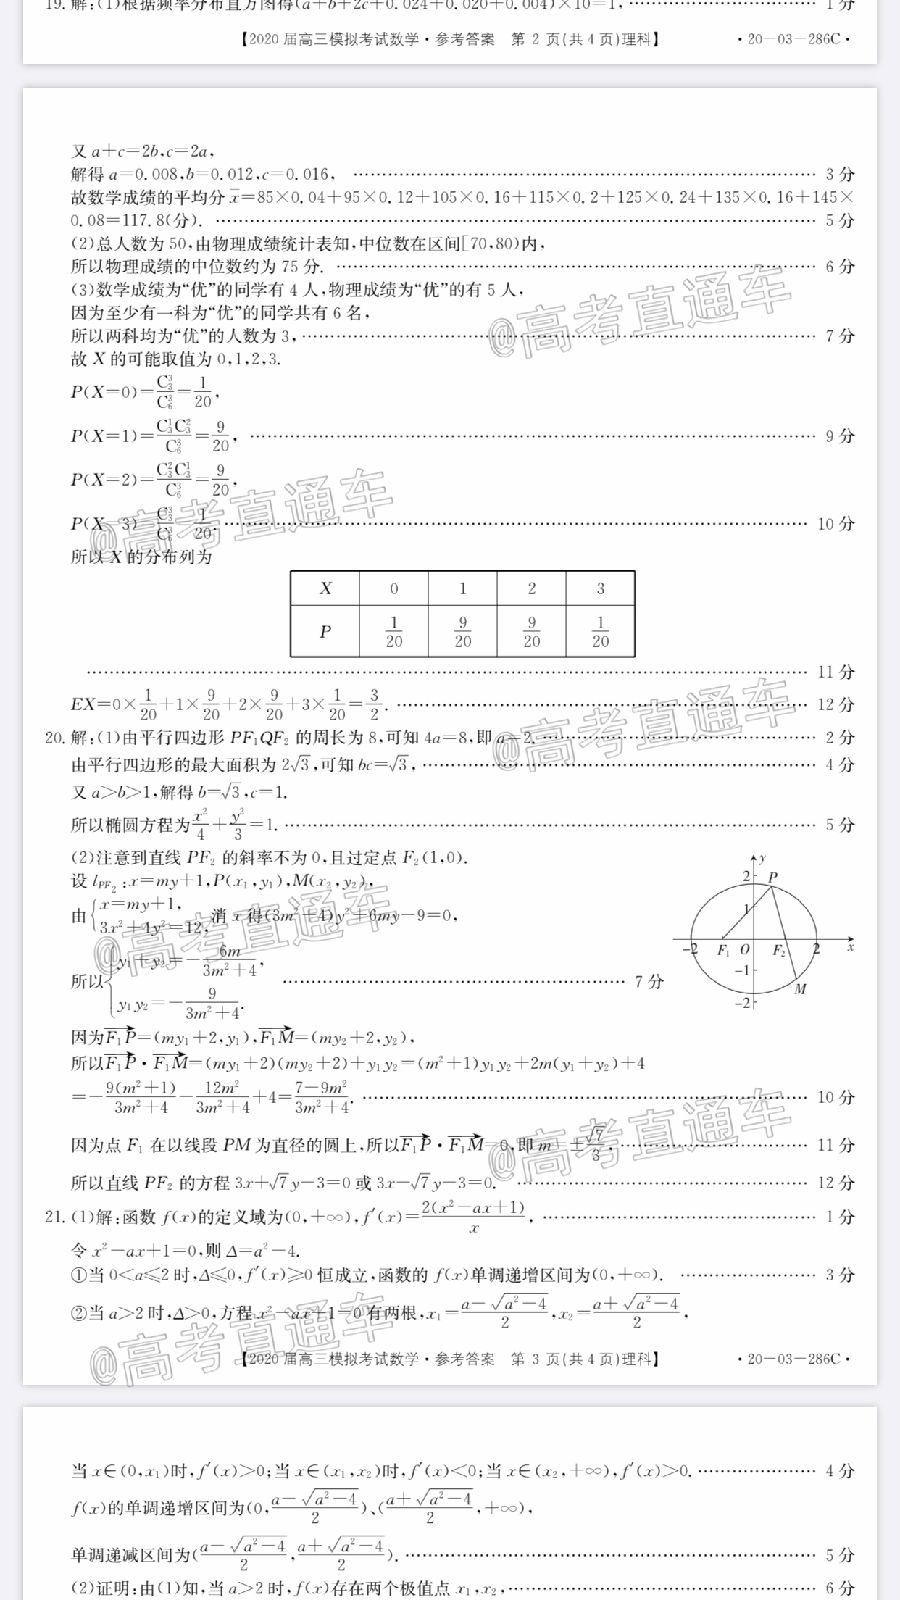 19. 解:(1)根据频率分布直方图得(a+b+2c+0.024+0.020+0.004)×10=1, …… 1 分
【2020 届高三模拟考试数学·参考答案 第 2 页(共 4 页)理科】 ·20-03-286C·
又 a+c=2b,c=2a,
解得 a=0.008,b=0.012,c=0.016, …… 3 分
故数学成绩的平均分 x̄=85×0.04+95×0.12+105×0.16+115×0.2+125×0.24+135×0.16+145×
0.08=117.8(分). …… 5 分
(2)总人数为 50,由物理成绩统计表知,中位数在区间[70,80)内,
所以物理成绩的中位数约为 75 分. …… 6 分
(3)数学成绩为“优”的同学有 4 人,物理成绩为“优”的有 5 人,
因为至少有一科为“优”的同学共有 6 名,
所以两科均为“优”的人数为 3, …… 7 分
故 X 的可能取值为 0,1,2,3.
P(X=0)=C₃³/C₆³=1/20,
P(X=1)=C₃¹C₃²/C₆³=9/20, …… 9 分
P(X=2)=C₃²C₃¹/C₆³=9/20,
P(X=3)=C₃³/C₆³=1/20. …… 10 分
所以 X 的分布列为
X 0 1 2 3
P 1/20 9/20 9/20 1/20
…… 11 分
EX=0×1/20+1×9/20+2×9/20+3×1/20=3/2. …… 12 分
20. 解:(1)由平行四边形 PF₁QF₂ 的周长为 8,可知 4a=8,即 a=2. …… 2 分
由平行四边形的最大面积为 2√3,可知 bc=√3, …… 4 分
又 a>b>1,解得 b=√3,c=1.
所以椭圆方程为 x²/4+y²/3=1. …… 5 分
(2)注意到直线 PF₂ 的斜率不为 0,且过定点 F₂(1,0).
设 l_PF₂:x=my+1,P(x₁,y₁),M(x₂,y₂),
由{x=my+1, 3x²+4y²=12, 消 x 得(3m²+4)y²+6my-9=0,
所以{y₁+y₂=-6m/(3m²+4), y₁y₂=-9/(3m²+4). …… 7 分
y
2 P
1
-2 F₁ O F₂ 2 x
-1
M
-2
因为F₁P→=(my₁+2,y₁),F₁M→=(my₂+2,y₂),
所以F₁P→·F₁M→=(my₁+2)(my₂+2)+y₁y₂=(m²+1)y₁y₂+2m(y₁+y₂)+4
=-9(m²+1)/(3m²+4)-12m²/(3m²+4)+4=(7-9m²)/(3m²+4). …… 10 分
因为点 F₁ 在以线段 PM 为直径的圆上,所以F₁P→·F₁M→=0,即 m=±√7/3, …… 11 分
所以直线 PF₂ 的方程 3x+√7y-3=0 或 3x-√7y-3=0. …… 12 分
21. (1)解:函数 f(x)的定义域为(0,+∞),f′(x)=2(x²-ax+1)/x, …… 1 分
令 x²-ax+1=0,则 Δ=a²-4.
①当 0<a≤2 时,Δ≤0,f′(x)≥0 恒成立,函数的 f(x)单调递增区间为(0,+∞). …… 3 分
②当 a>2 时,Δ>0,方程 x²-ax+1=0 有两根,x₁=(a-√(a²-4))/2,x₂=(a+√(a²-4))/2,
【2020 届高三模拟考试数学·参考答案 第 3 页(共 4 页)理科】 ·20-03-286C·
当 x∈(0,x₁)时,f′(x)>0;当 x∈(x₁,x₂)时,f′(x)<0;当 x∈(x₂,+∞),f′(x)>0. …… 4 分
f(x)的单调递增区间为(0,(a-√(a²-4))/2)、((a+√(a²-4))/2,+∞),
单调递减区间为((a-√(a²-4))/2,(a+√(a²-4))/2). …… 5 分
(2)证明:由(1)知,当 a>2 时,f(x)存在两个极值点 x₁,x₂, …… 6 分
@高考直通车
@高考直通车
@高考直通车
@高考直通车
@高考直通车
@高考直通车